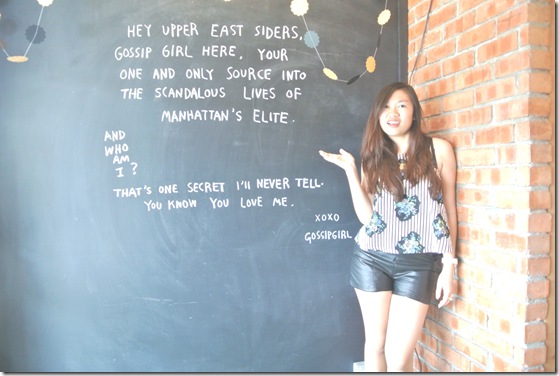 HEY UPPER EAST SIDERS,
GOSSIP GIRL HERE, YOUR
ONE AND ONLY SOURCE INTO
THE SCANDALOUS LIVES OF
MANHATTAN'S ELITE.
AND
WHO
AM
I?
THAT'S ONE SECRET I'LL NEVER TELL.
YOU KNOW YOU LOVE ME.
XOXO
GOSSIPGIRL